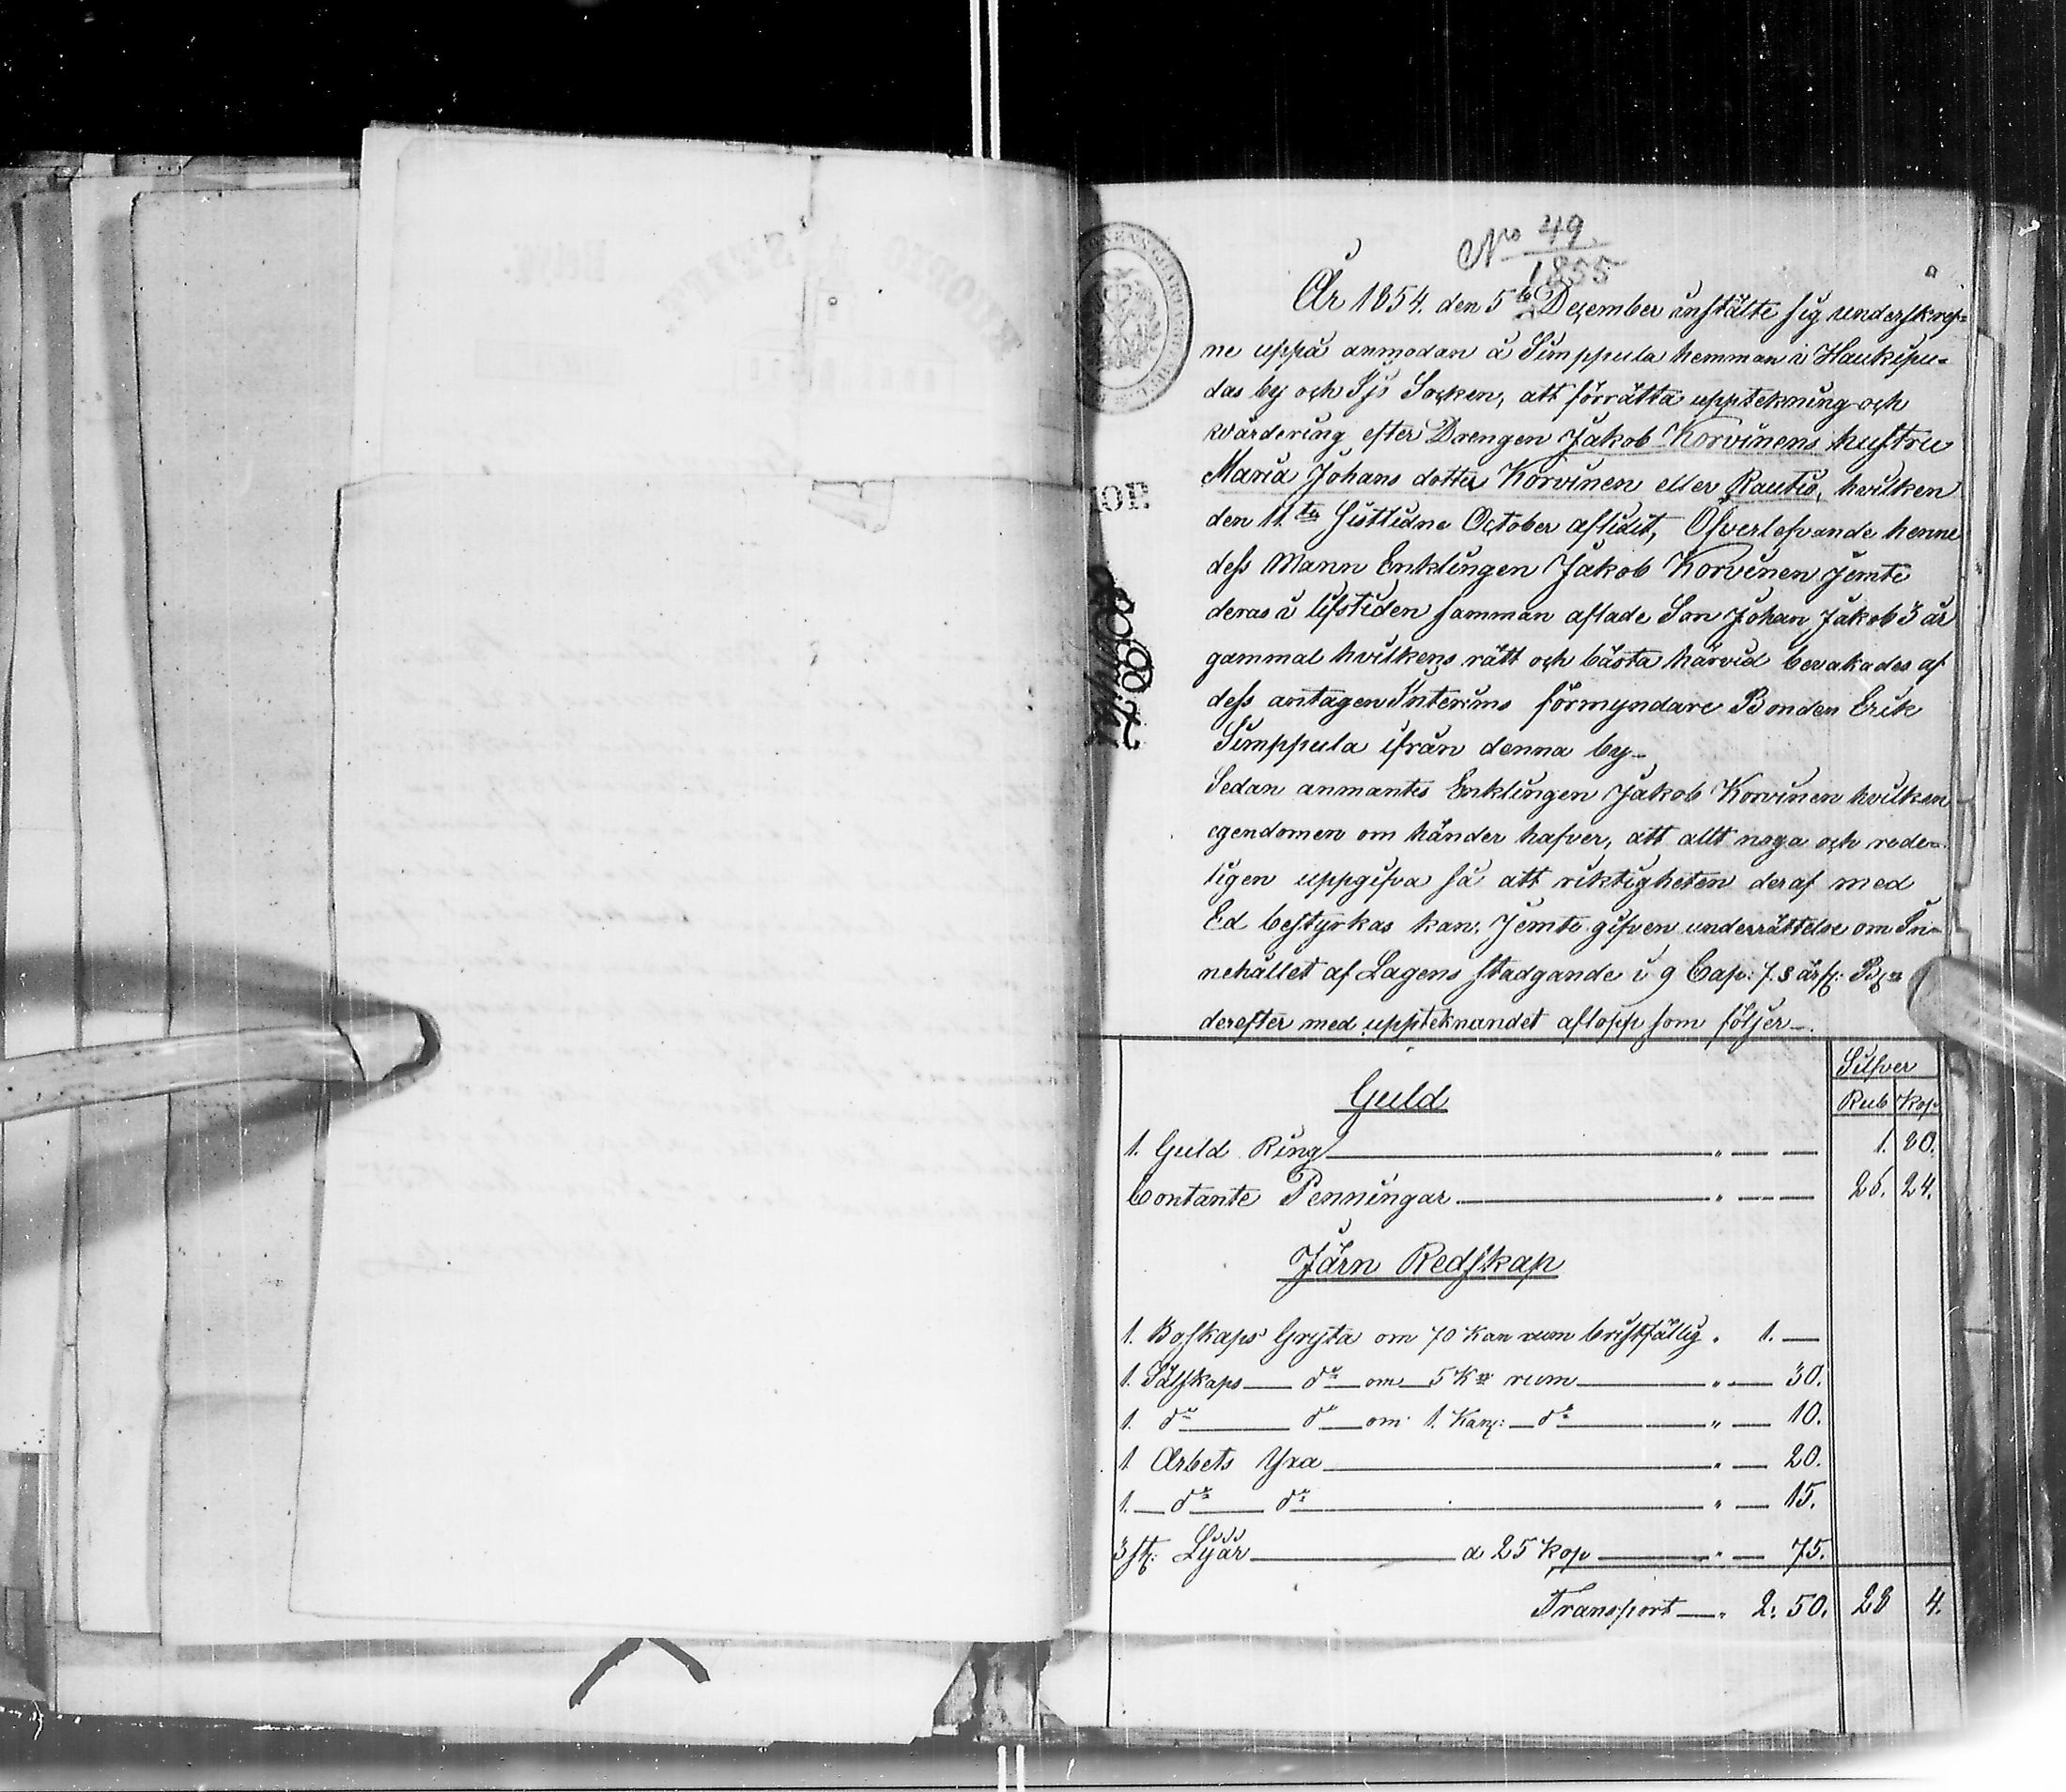 No 49
1855
År 1854. den 5te December instälte sig underskref=
ne uppå anmodan å Simppula hemman i Haukipu=
das by och Sjs Socken, att förrätta uppteckning och
värdering efter Drengen Jakob Korvinens hustru
Maria Johans dotter Korvinen eller Rautio, hvilken
den 11.te sistlidne October aflidit, Öfverlefvande henne
dess Mann Enklingen Jakob Korvinen jemte
deras i lifstiden samman aflade Son Johan Jakob 3 år
gammal hvilkens rätt och bästa härvid bevakades af
dess antagen Interims förmyndare Bonden Erik
Simppula ifrån denna by-
Sedan anmantes Enklingen Jakob Korvinen hvilken
egendomen om händer hafver, att allt noga och rede=
ligen uppgifva så att riktigheten deraf med
Ed bestyrkas kan. Jemte gifven underrättelse om In=
nehållet af Lagens stadgande i 9 Cap: 7. §
derefter med upptecknandet aflopp som följer-.
Silfver
Rub Kop
Guld
1. Guld Ring " 1. 80.
Contante Penningar " 26. 24.
Järn Redskap
1. Boskaps Gryta om 70 Kan rum bristfällig " 1. —
1. Sälskaps do om 5 Kr rum " 30.
1. do do om 1. Kan: do " 10.
1 Arbets Yxa " 20.
1. do do " 15.
3 st: Lijår a 25 kop " 75.
Transport " 2. 50. 28 4.
KOP.